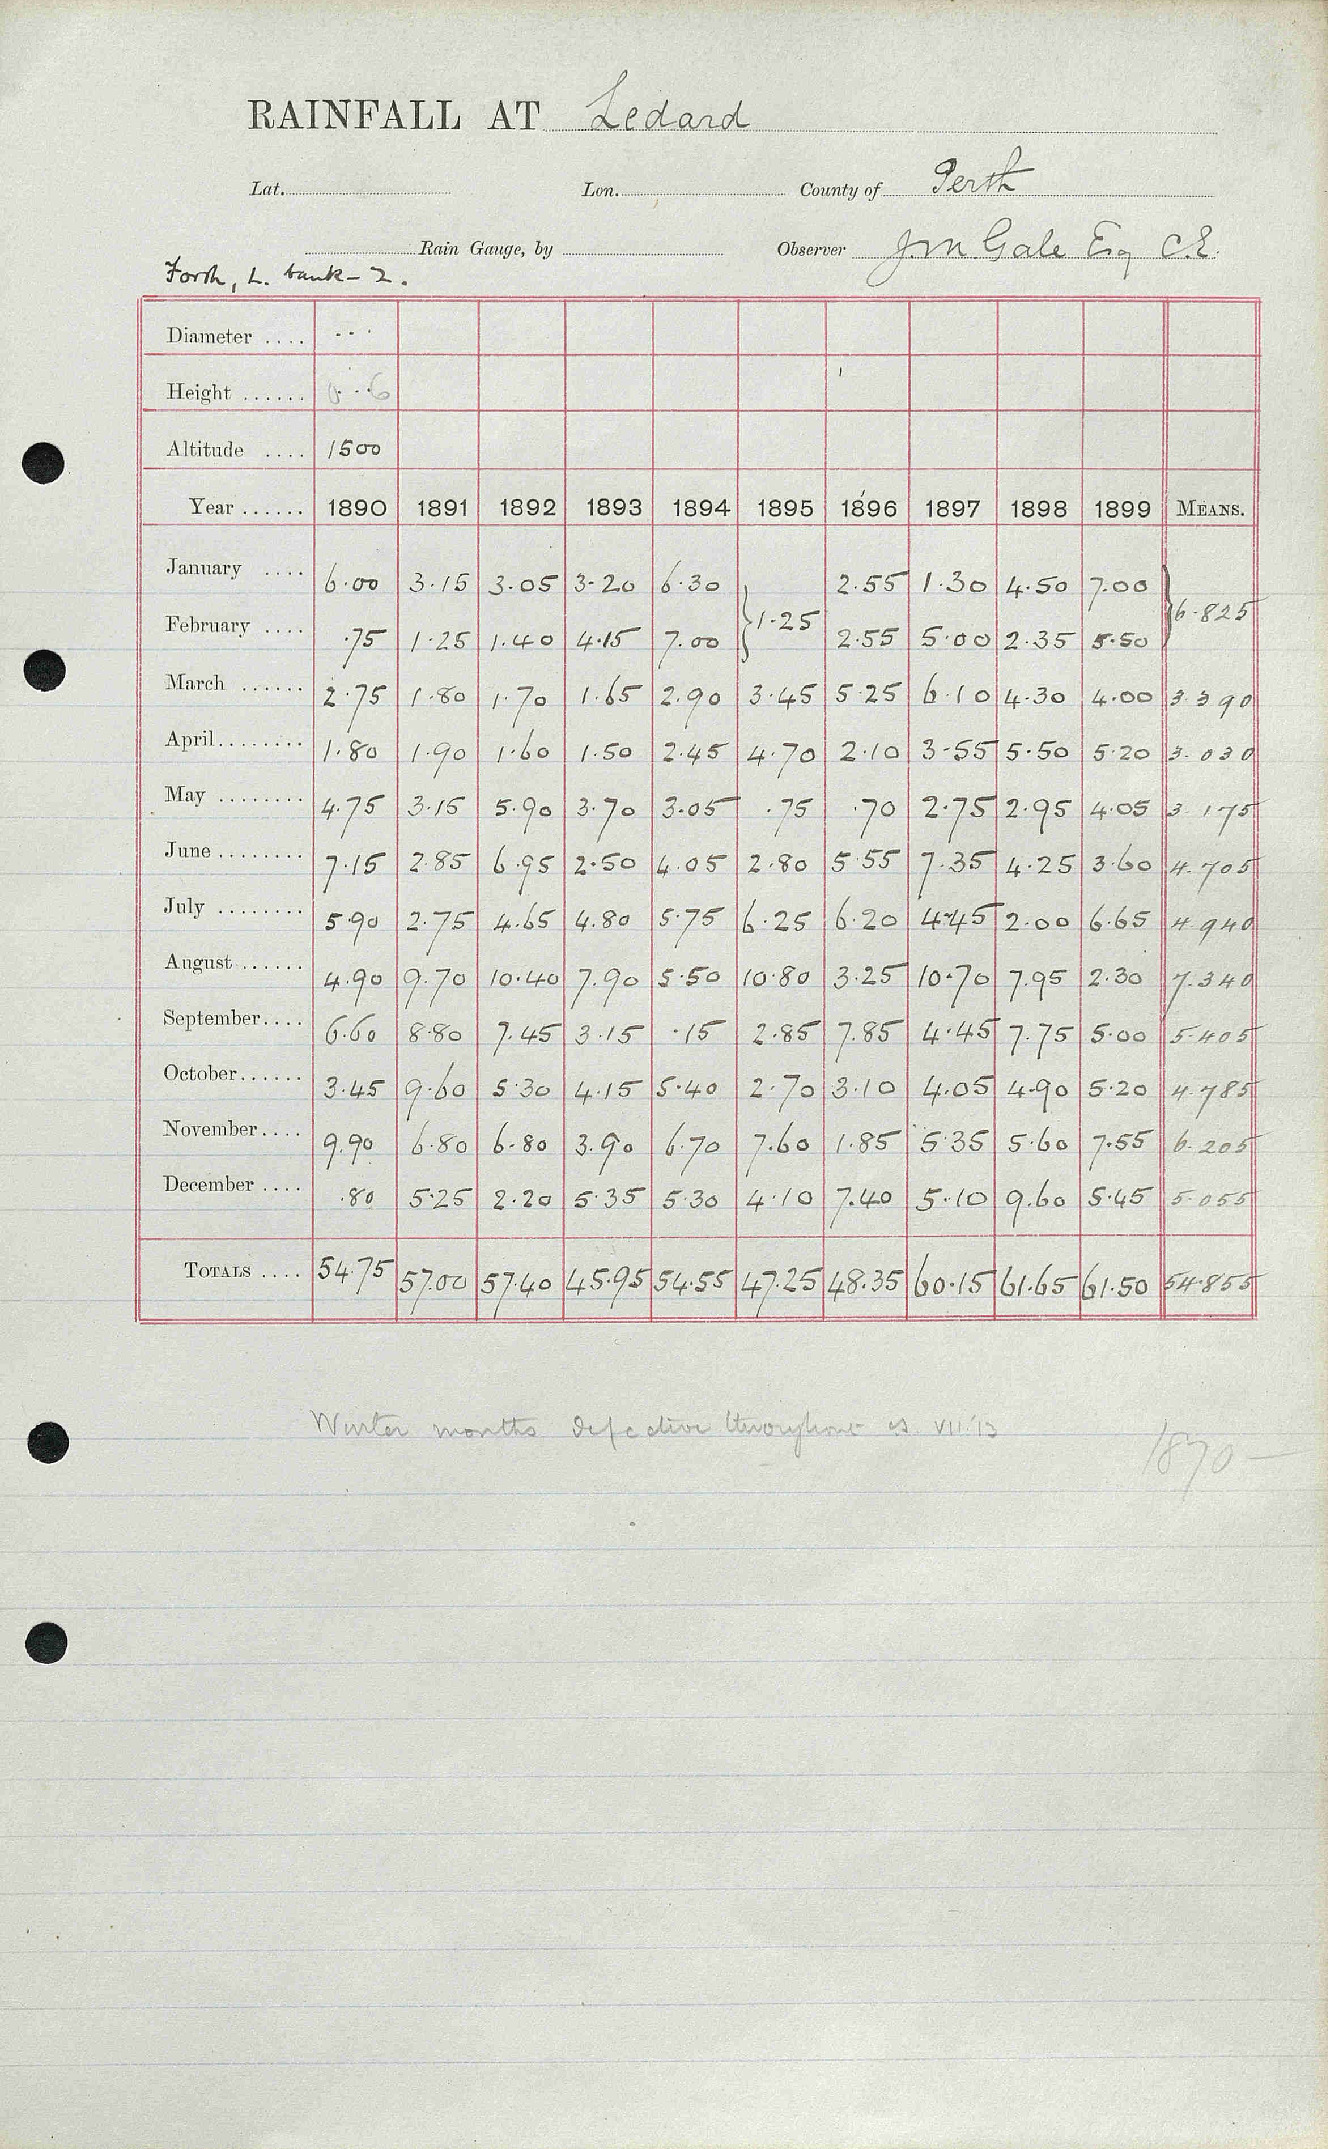 RAINFALL AT Ledard
Lat. Lon. County of Perth
Rain Gauge, by Observer J.M Gale Esq C.E.
Forth, L. bank - 2.
Diameter .... ...
Height ...... 0..6
Altitude .... 1500
Year ...... 1890 1891 1892 1893 1894 1895 1896 1897 1898 1899 MEANS.
January .... 6.00 3.15 3.05 3.20 6.30 2.55 1.30 4.50 7.00
} 1.25 } 6.825
February .... .75 1.25 1.40 4.15 7.00 2.55 5.00 2.35 5.50
March ...... 2.75 1.80 1.70 1.65 2.90 3.45 5.25 6.10 4.30 4.00 3.390
April........ 1.80 1.90 1.60 1.50 2.45 4.70 2.10 3.55 5.50 5.20 3.030
May ........ 4.75 3.15 5.90 3.70 3.05 .75 .70 2.75 2.95 4.05 3.175
June ........ 7.15 2.85 6.95 2.50 4.05 2.80 5.55 7.35 4.25 3.60 4.705
July ........ 5.90 2.75 4.65 4.80 5.75 6.25 6.20 4.45 2.00 6.65 4.940
August ...... 4.90 9.70 10.40 7.90 5.50 10.80 3.25 10.70 7.95 2.30 7.340
September.... 6.60 8.80 7.45 3.15 .15 2.85 7.85 4.45 7.75 5.00 5.405
October...... 3.45 9.60 5.30 4.15 5.40 2.70 3.10 4.05 4.90 5.20 4.785
November.... 9.90 6.80 6.80 3.90 6.70 7.60 1.85 5.35 5.60 7.55 6.205
December .... .80 5.25 2.20 5.35 5.30 4.10 7.40 5.10 9.60 5.45 5.055
TOTALS .... 54.75 57.00 57.40 45.95 54.55 47.25 48.35 60.15 61.65 61.50 54.855
Winter months defective throughout VII.'13
1870 —